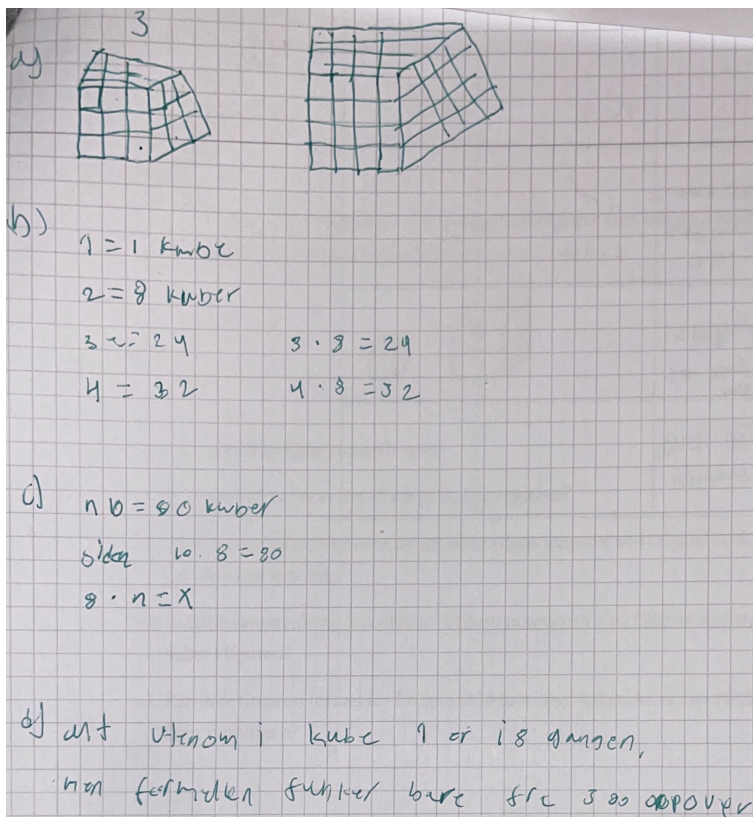 a) 3
b)
1 = 1 kube
2 = 8 kuber
3 = 24 3 · 8 = 24
4 = 32 4 · 8 = 32
c) n 10 = 80 kuber
siden 10 · 8 = 80
8 · n = X
d) alt utenom i kube 1 er i 8 gangen,
men formelen funker bare fra 3 og oppover